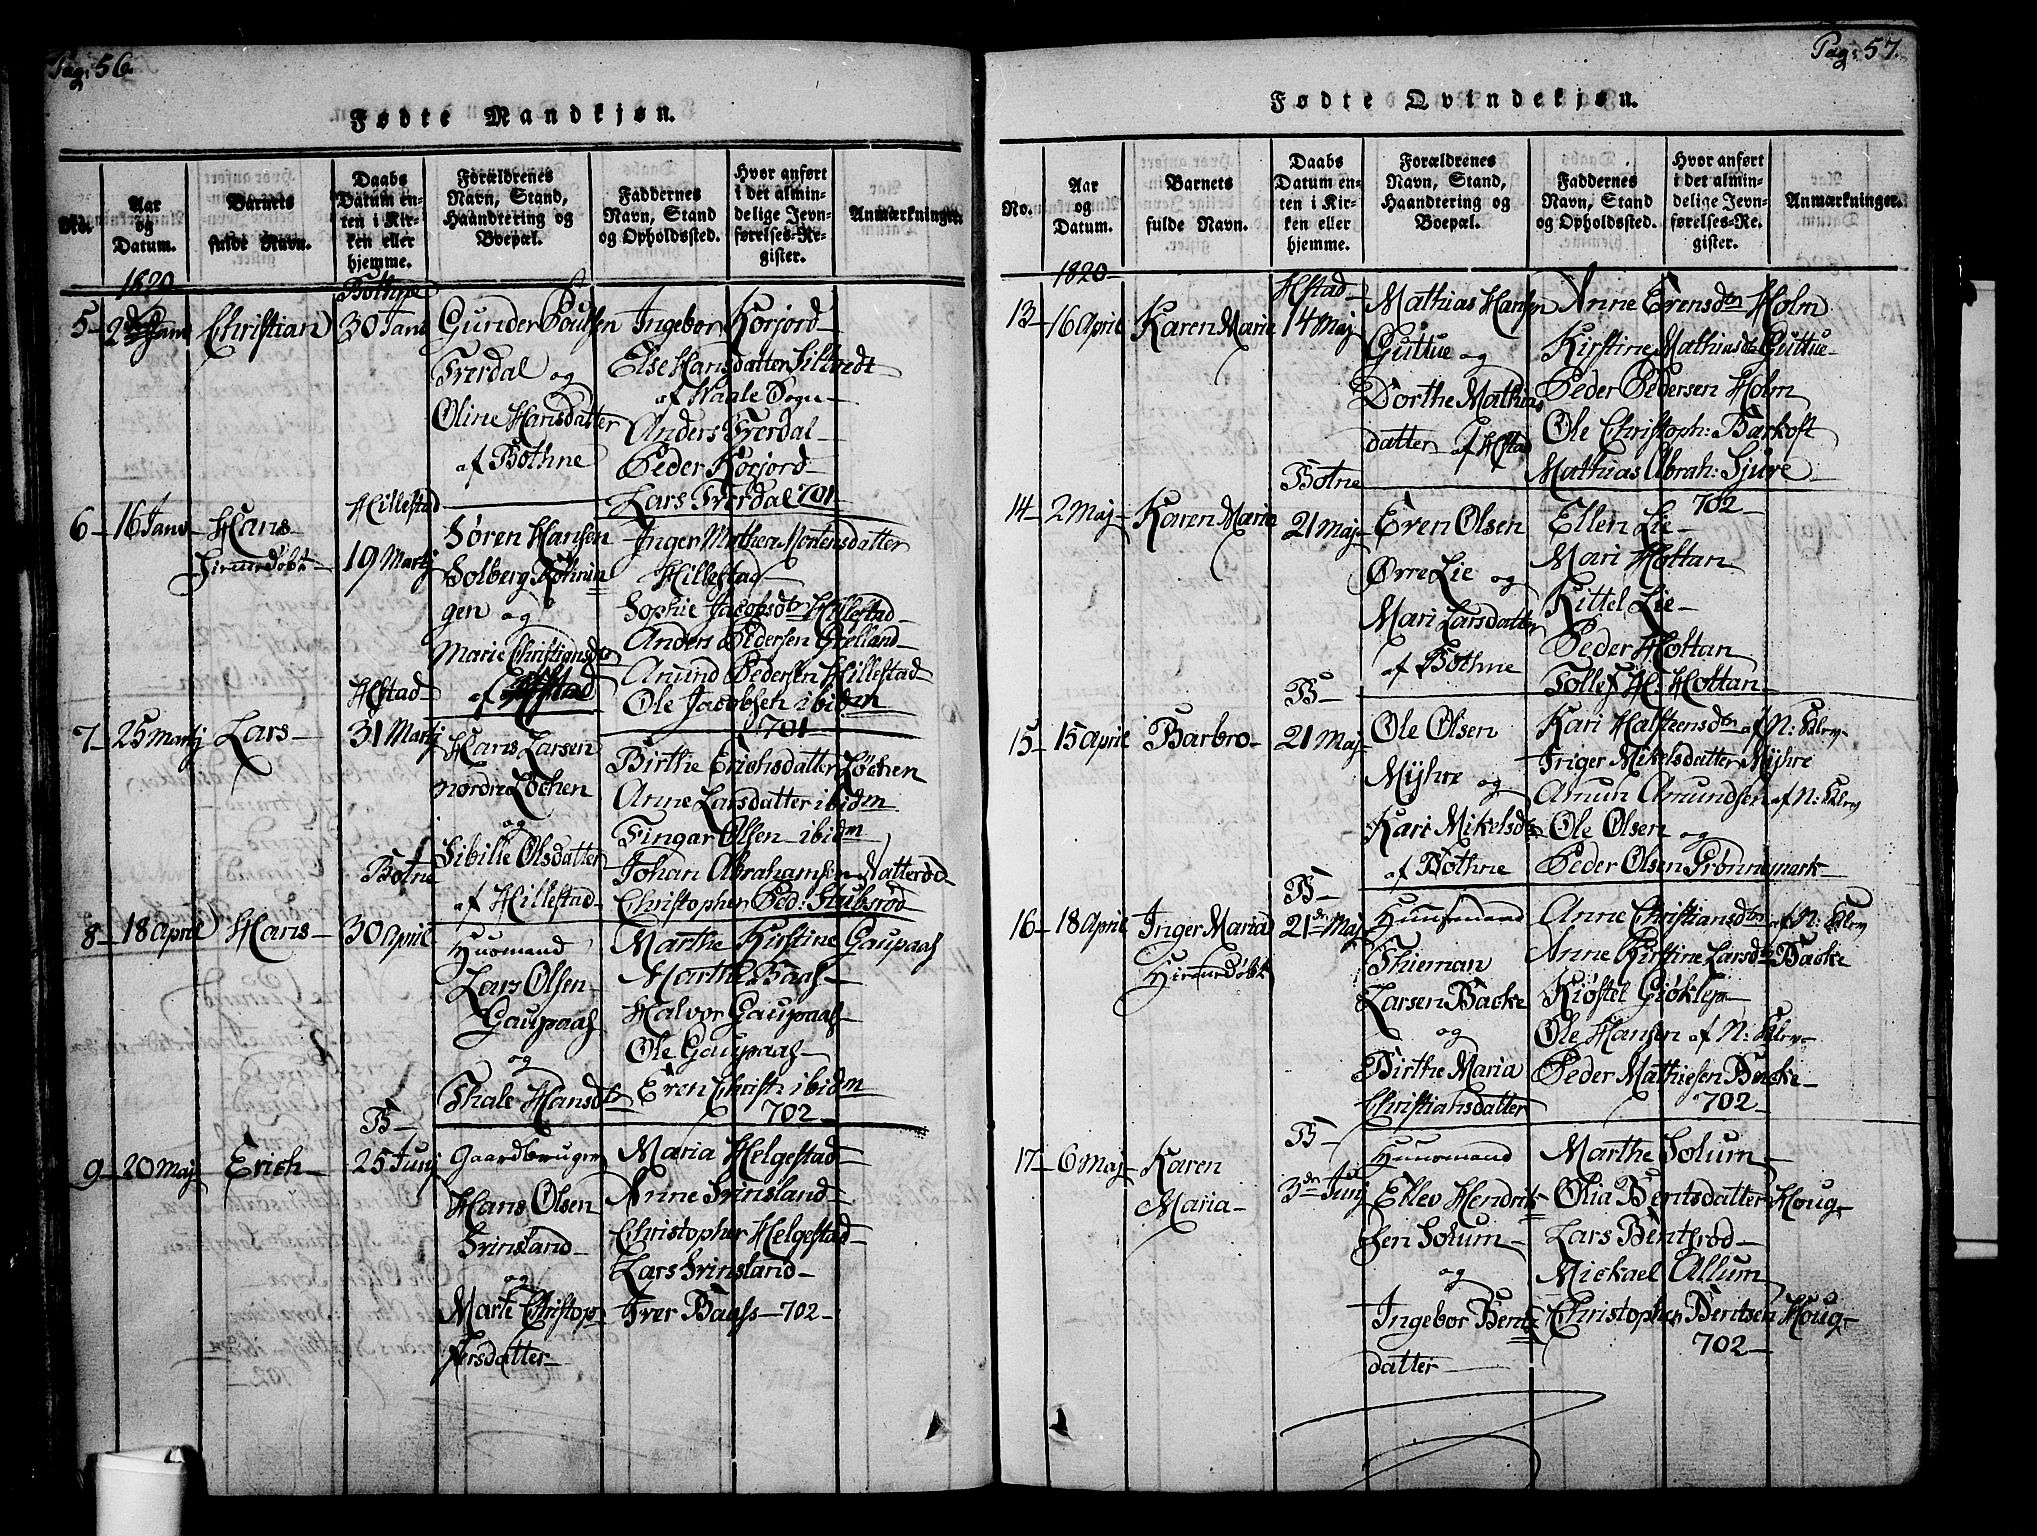 Pag: 56.
Fødte Mandkjøn.
No.
Aar
og
Datum.
Barnets
fulde Navn.
Daabs
Datum en-
ten i Kir-
ken eller
hjemme.
Forældrenes
Navn, Stand,
Haandtering og
Boepæl.
Faddernes
Navn, Stand
og Opholdssted.
Hvor anført
i det almin-
delige Jevn-
førelses-Re-
gister.
Anmærkninger.
1820
5-
Janu
Christian
Bothne
30 Janu
Gunder Poulsen
Trerdal og
Oline Hansdatter
af Bothne
Ingebor Korjord-
Else Hansdatter
af Waale Sogn-
Anders Trerdal-
Peder Korjord-
Lars Trerdal 701-
6-
16 Janu
Hans
Hillestad
19 Martj
Søren Hansen
Solberg
gen og
Marie Christiansdtr
af
Inger Mathea Mortensdatter
Hillestad-
Sophie Jacobsdtr Hillestad-
Anders Pedersen Grelland-
Amund Pedersen Hillestad-
Ole Jacobsen ibidm
701-
7-
25 Martj
Lars-
Hstad-
31 Martj
Hans Larsen
nordre Løchen
og
Sibille Olsdatter
af Hillestad-
Birthe Erichsdatter Løchen
Anne Larsdatter ibidm
Fingar Olsen ibidm
Johan Abrahamsen Natterød-
Christopher Ped: Stubsrød
8-
18 April
Hans-
Botne
30 April
Huusmand
Lars Olsen
Gaupaas
og
Thale Hansdtr
Marthe Kirstine Gaupaas
Marthe Baas-
Halvor Gaupaas-
Ole Gaupaas-
Eren Christs ibidm
702-
9-
20 Maj
Erich-
B-
25 Junj
Gaardbruger
Hans Olsen
Srinsland-
og
Marte Christop
hersdatter-
Maria Helgestad-
Anne Srinsland-
Christopher Helgestad-
Lars Srinsland-
Iver Baass-702-
Pag: 57.
Fødte Qvindekjøn.
No.
Aar
og
Datum.
Barnets
fulde Navn.
Daabs
Datum en-
ten i Kir-
ken eller
hjemme.
Forældrenes
Navn, Stand,
Haandtering og
Boepæl.
Faddernes
Navn, Stand
og Opholdssted.
Hvor anført
i det almin-
delige Jevn-
førelses-Re-
gister.
Anmærkninger.
1820-
13-
16 April
Karen Marie
Hstad-
14 Maj
Mathias Hansen
Guttue og
Dorthe Mathias
datter af Hstad
Anne Erensdtr Holm
Kirstine Mathiasdtr Guttue-
Peder Pedersen Holm
Ole Christoph: Barkost
Mathias Abrah: Sjure
702-
14-
2 Maj-
Karen Maria
Botne
21 Maj-
Eren Olsen
Ørre Lie og
Mari Larsdatter
af Bothne
Ellen Lie-
Mari Hottan
Kittel Lie-
Peder Hottan
Tollef H: Hottan-
15-
15 April
Barbro-
B-
21 Maj
Ole Olsen
Myhre og
Kari Mikelsdtr
af Bothne
Kari Halstensdtr af N:
Inger Mikelsdatter Myhre
Anun Amundsen af N:
Ole Olsen og
Peder Olsen Grønnemark-
16-
18 April
Inger Maria
B-
21de Maj
Huusmand
Thieman
Larsen Backe
og
Birthe Maria
Christiansdatter
Anne Christiansdtr af N:
Anne Kirstine Larsdtr Backe
Kiøstel Giøklep-
Ole Hansen af N:
Peder Mathiesen Backe-
702-
17-
6 Maj-
Karen
Maria-
B-
3de Junj
Huusmand
Ellev Hendrik
sen Solum-
og
Ingebor Bents
datter-
Marthe Solum-
Olia Bentsdatter Houg-
Lars Bentsrød-
Mickael Allum-
Christopher Bentsen Houg-
702-